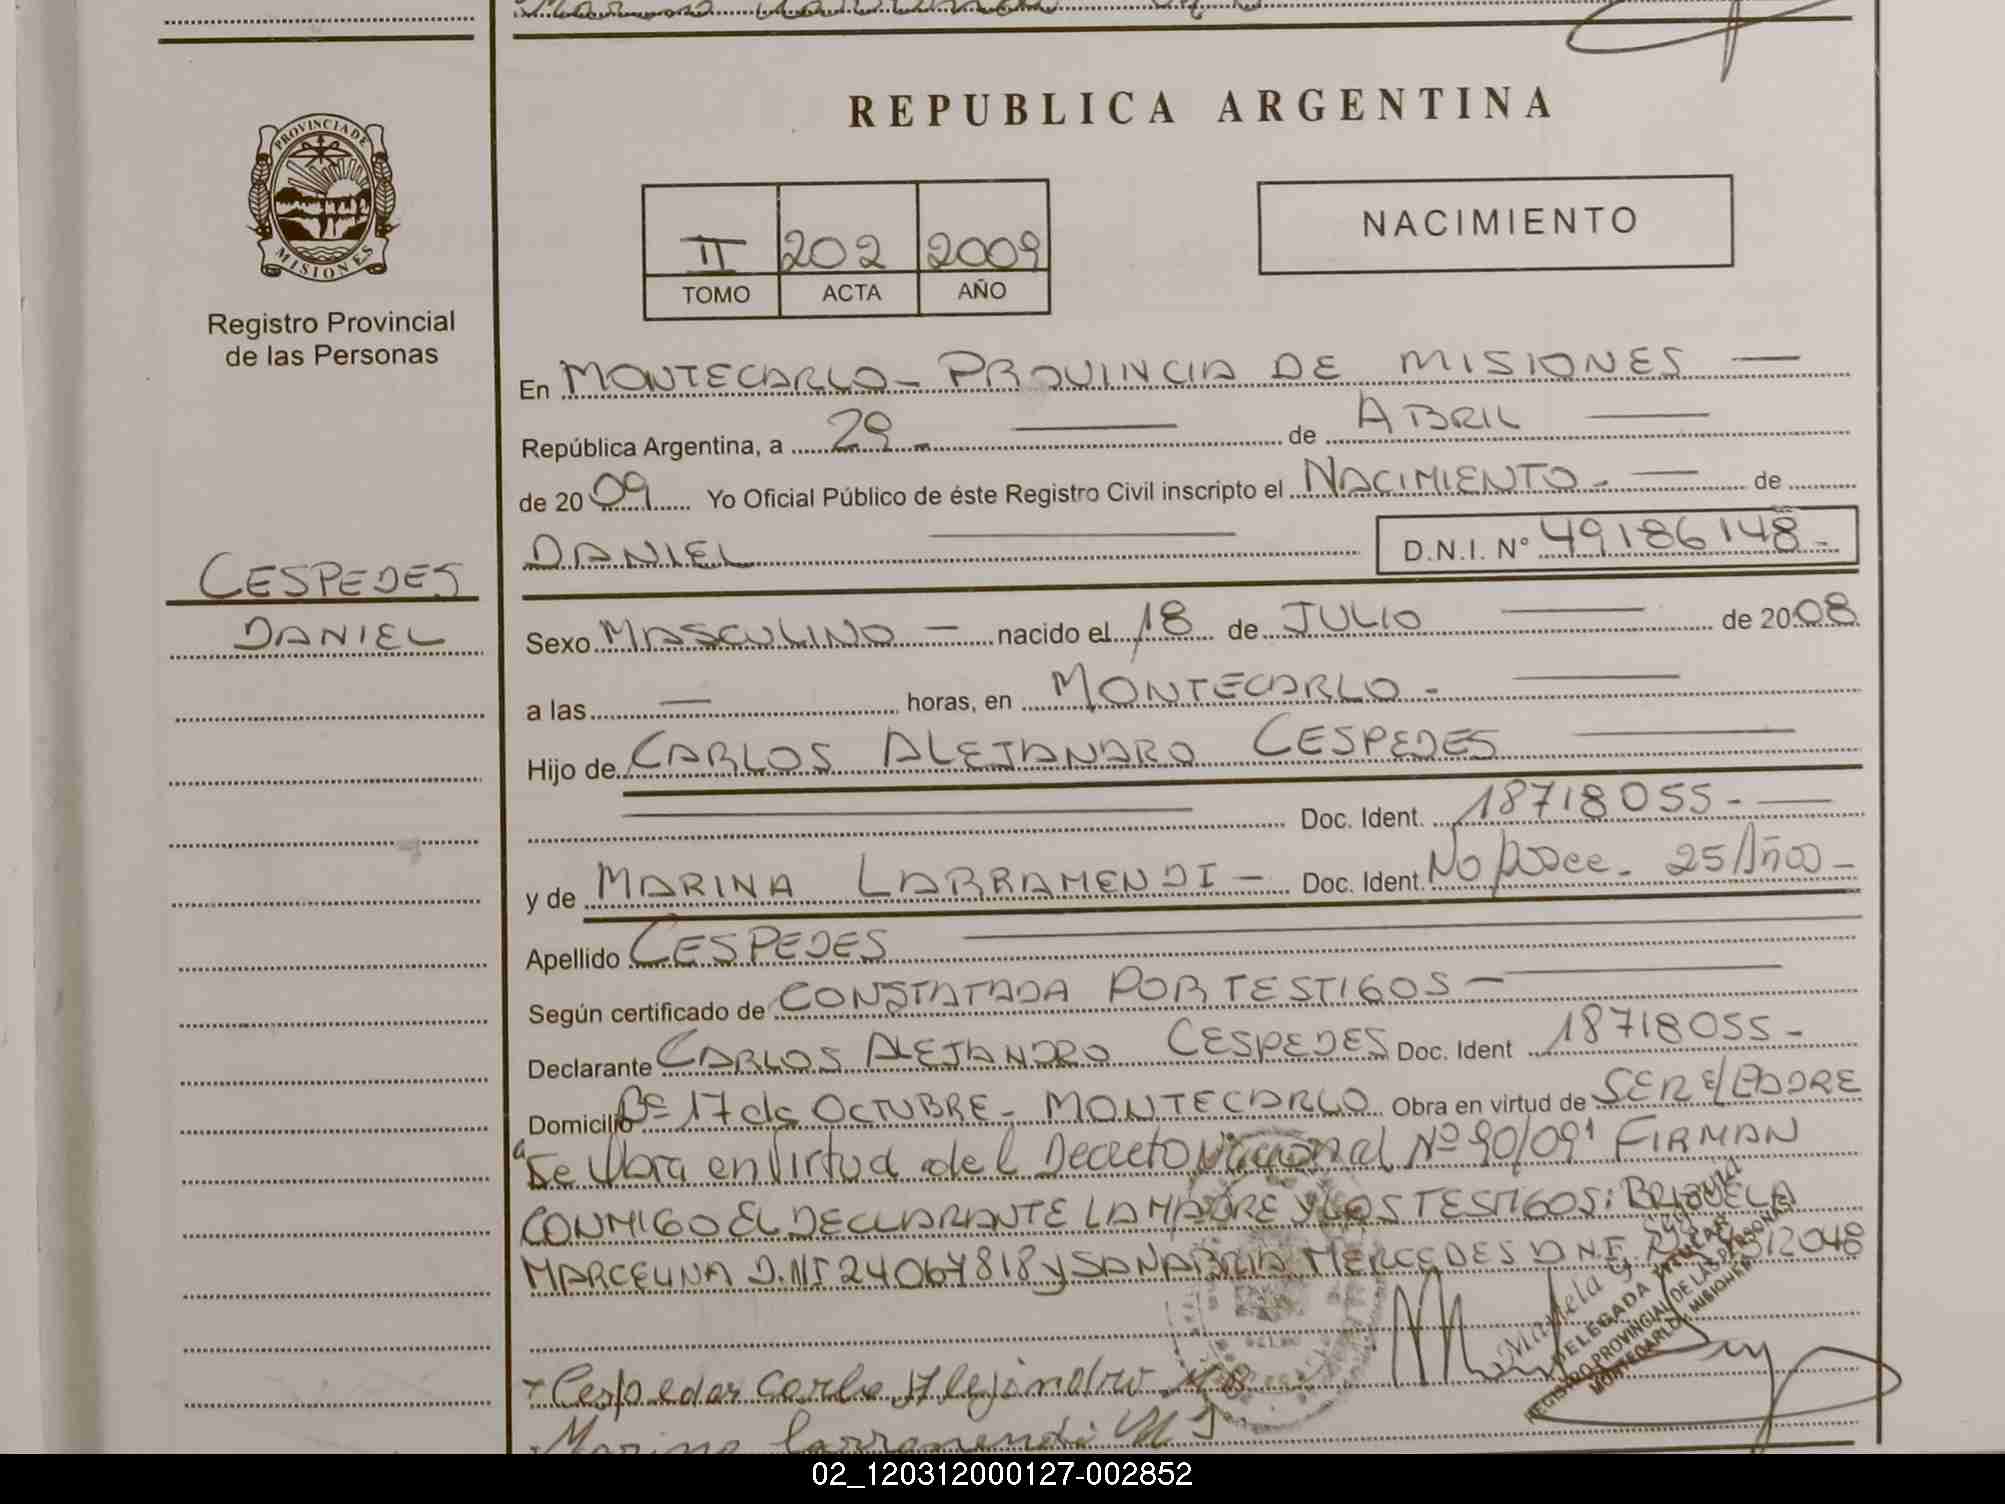 REPUBLICA ARGENTINA
PROVINCIA DE
MISIONES
Registro Provincial
de las Personas
II 202 2009
TOMO ACTA AÑO
NACIMIENTO
En MONTECARLO - PROVINCIA DE MISIONES —
República Argentina, a 29 - — de ABRIL —
de 2009 Yo Oficial Público de éste Registro Civil inscripto el NACIMIENTO - — de
DANIEL — D.N.I. N° 49186148 -
CESPEDES
DANIEL
Sexo MASCULINO — nacido el 18 de JULIO — de 2008
a las — horas, en MONTECARLO - —
Hijo de CARLOS ALEJANDRO CESPEDES —
— Doc. Ident. 18718055 - —
y de MARINA LARRAMENDI — Doc. Ident. No posee - 25 Años -
Apellido CESPEDES —
Según certificado de CONSTATADA POR TESTIGOS —
Declarante CARLOS ALEJANDRO CESPEDES Doc. Ident 18718055 -
Domicilio B° 17 de OCTUBRE - MONTECARLO Obra en virtud de SER E/PADRE
Se Obra en Virtud del Decreto Nacional N° 90/09 FIRMAN
CONMIGO EL DECLARANTE LA MADRE Y LOS TESTIGOS: BRIZUELA
MARCELINA D.NI 24067818 y SANABRIA MERCEDES D.N.I.
DELEGADA TITULAR
REGISTRO PROVINCIAL DE LAS PERSONAS
MONTECARLO - MISIONES
Cespedes Carlo Alejandro
Marina Larramendi
02_120312000127-002852